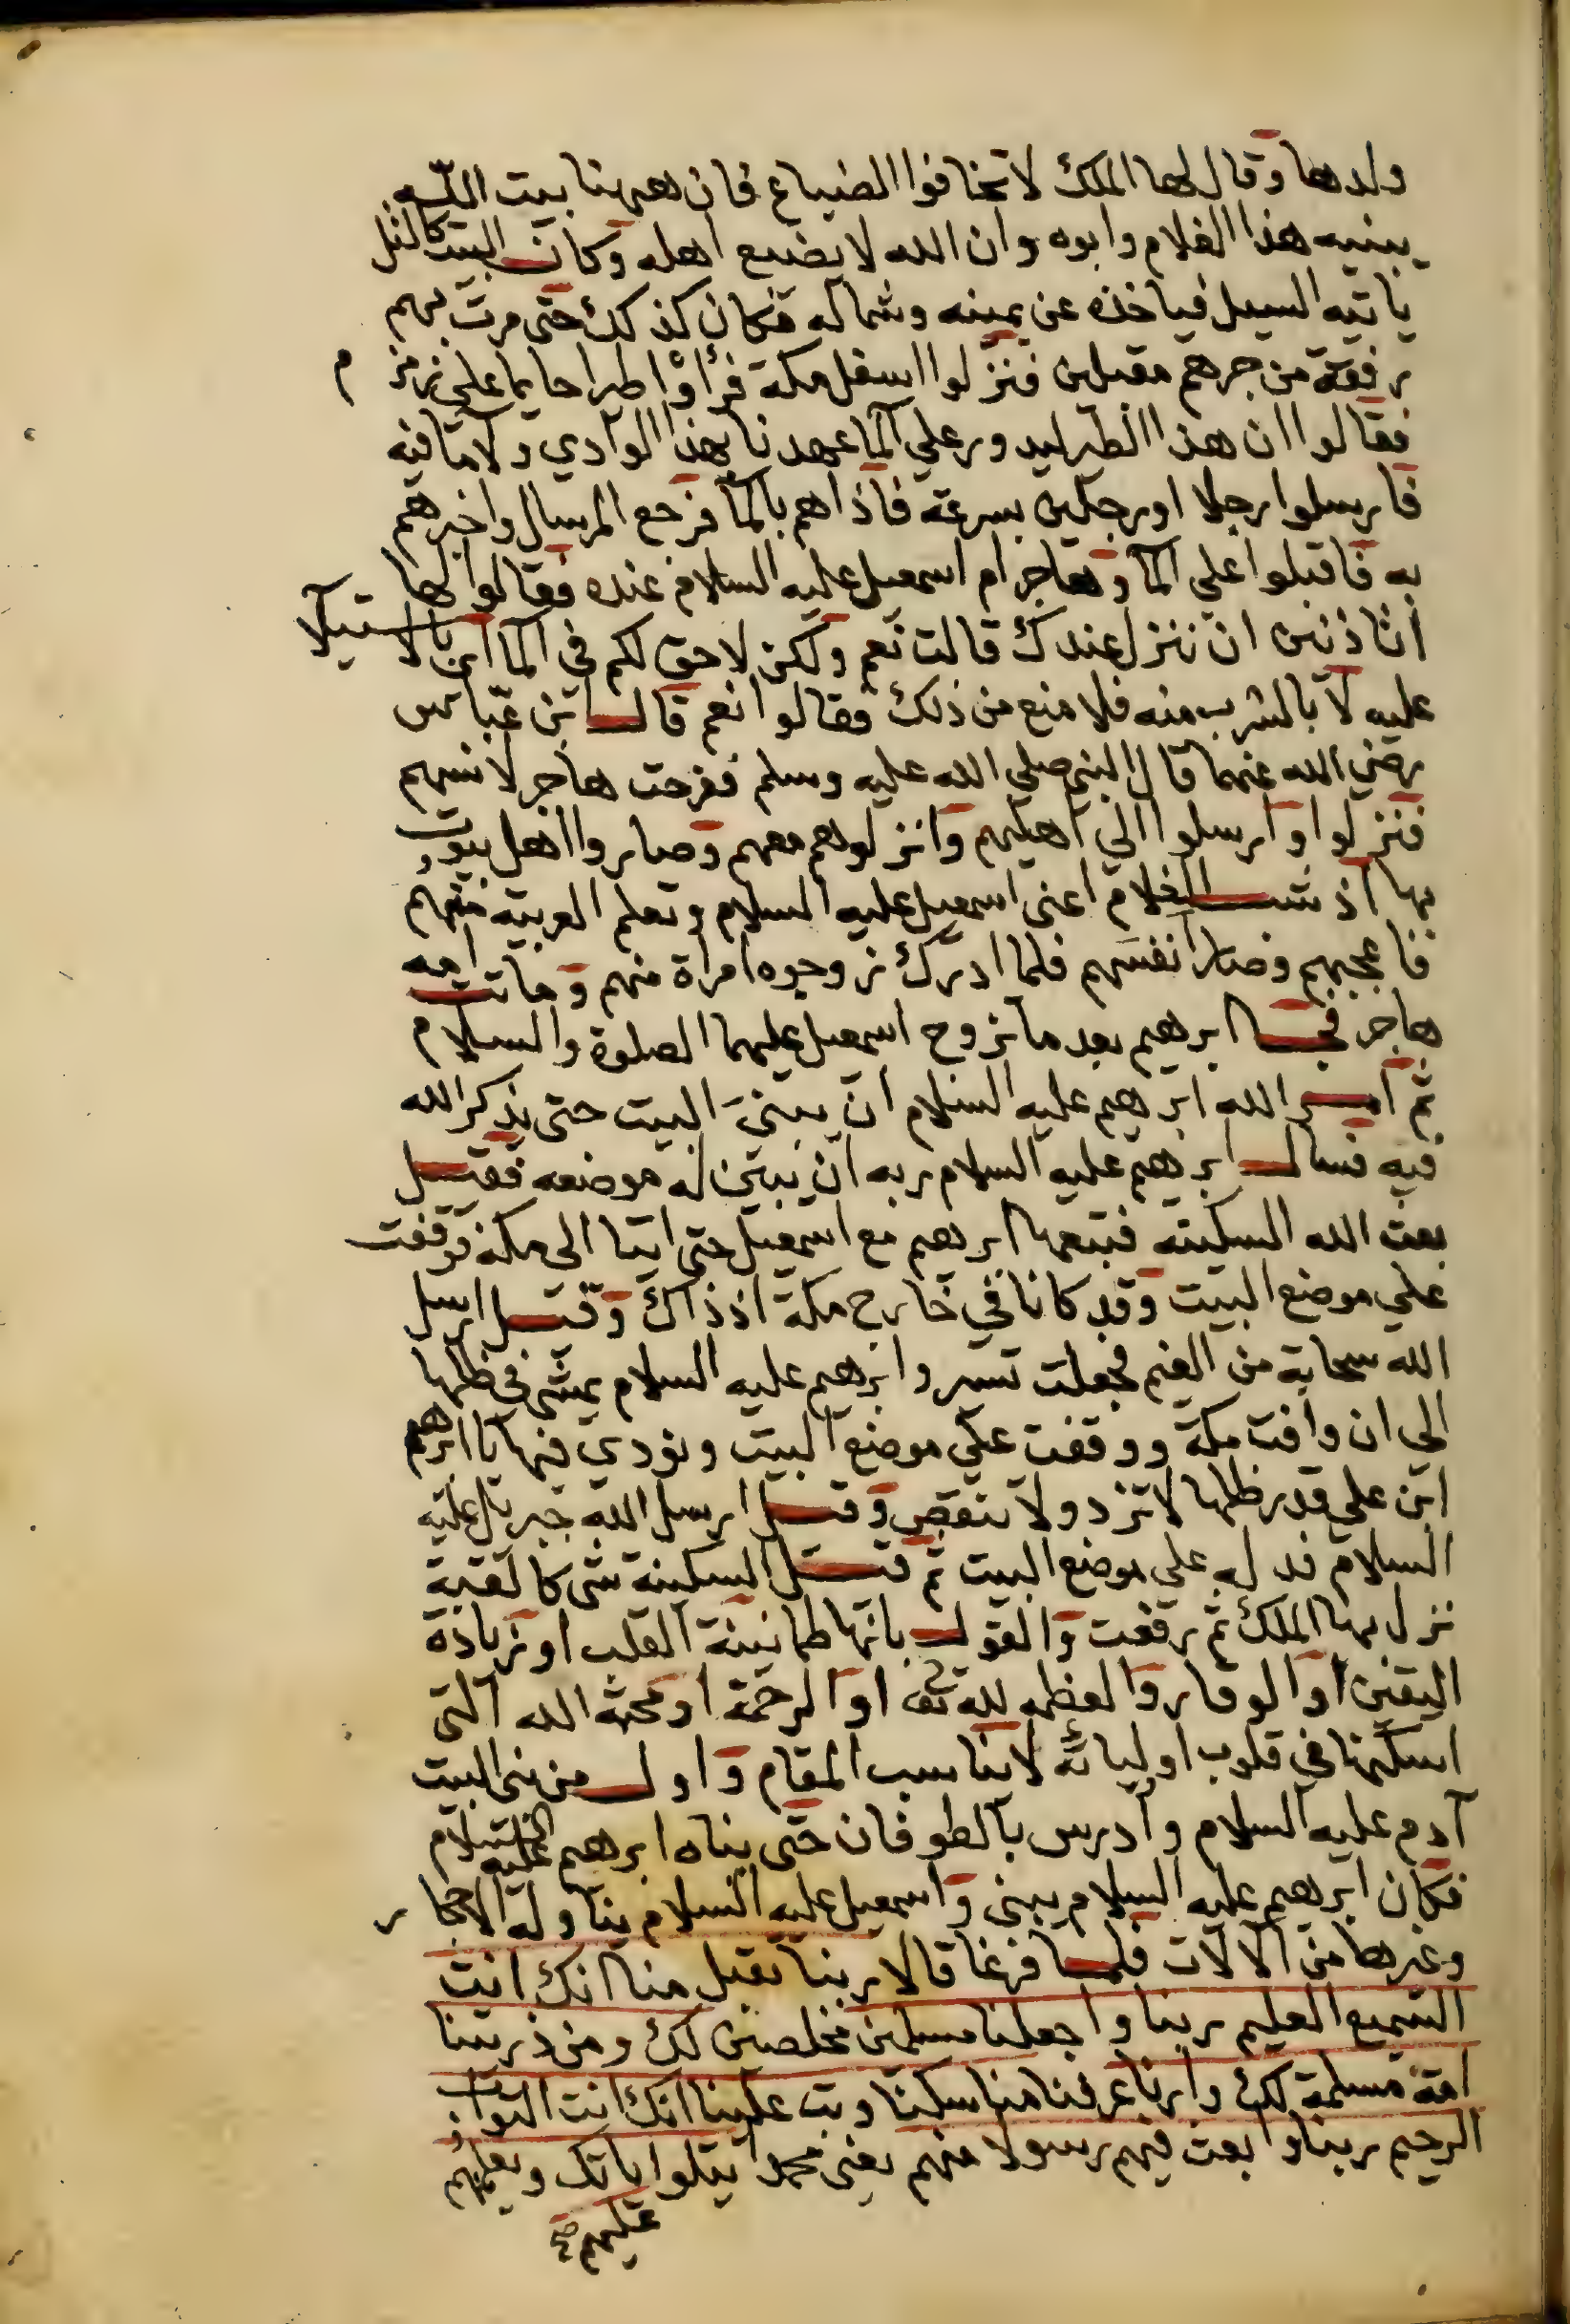 ولدها وقال لها الملك لا تخافوا الضياع فان ههنا بيت الله
يبنيه هذا الغلام وابوه وان الله لا يضيع اهله وكان البيت كالتل
ياتيه السيل فياخذه عن يمينه وشماله فكان كذلك حتى مرت بهم
رفقة من جرهم مقبلين فنزلوا اسفل مكة فرأوا طيرا حايما على زمزم
فقالوا ان هذا الطير ليدور على الما عهدنا بهذا الوادي ولا ما فيه
فارسلوا رجلا او رجلين بسرعة فاذا هم بالما فرجع المرسال واخبرهم
به فاقبلوا على الما وهاجر ام اسمعيل عليه السلام عنده فقالوا لها
اتاذنين ان ننزل عندك قالت نعم ولكن لا حق لكم في الما اي بالاستيلا
عليه لا بالشرب منه فلا منع من ذلك فقالوا نعم قال ابن عباس
رضي الله عنهما قال النبي صلى الله عليه وسلم ففرحت هاجر لانسهم
فنزلوا وارسلوا الى اهليهم وانزلوهم معهم وصاروا اهل بيوت
بها اذ شب الغلام اعني اسمعيل عليه السلام وتعلم العربية منهم
فاعجبهم وصار انفسهم فلما ادرك زوجوه امراة منهم وماتت امه
هاجر فجا ابرهيم بعد ما تزوج اسمعيل عليهما الصلوة والسلام
ثم امر الله ابرهيم عليه السلام ان يبني البيت حتى يذكر الله
فيه فسال ابرهيم عليه السلام ربه ان يبين له موضعه فقيل
بعث الله السكينة فتبعها ابرهيم مع اسمعيل حتى اتيا الى مكة فوقفت
على موضع البيت وقد كانا في خارج مكة اذ ذاك وقيل ارسل
الله سحابة من الغيم فجعلت تسير وابرهيم عليه السلام يمشي في ظلها
الى ان وافت مكة ووقفت على موضع البيت ونودي فيها يا ابرهيم
ابن على قدر ظلها لا تزد ولا تنقص وقيل ارسل الله جبريل عليه
السلام فدله على موضع البيت ثم قيل السكينة شي كالقبة
نزل بها الملك ثم رفعت والقول بانها طمانينة القلب او زيادة
اليقين او الوقار والعظمه لله تع او الرحمة او محبة الله التي
اسكنها في قلوب اوليائه لا يناسب المقام واول من بنى البيت
آدم عليه السلام وادرس بالطوفان حتى بناه ابرهيم عليه السلام
فكان ابرهيم عليه السلام يبني واسمعيل عليه السلام يناوله الاحجار
وغيرها من الالات فلما فرغا قالا ربنا تقبل منا انك انت
السميع العليم ربنا واجعلنا مسلمين مخلصين لك ومن ذريتنا
امة مسلمة لك وارنا عرفنا مناسكنا وتب علينا انك انت التواب
الرحيم ربنا وابعث فيهم رسولا منهم يعني محمد يتلوا اياتك ويعلمهم
عليهم صح